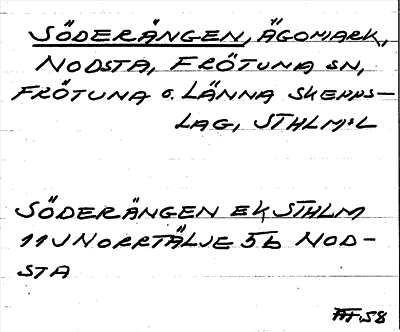 SÖDERÄNGEN, ÄGOMARK,
NODSTA, FRÖTUNA SN,
FRÖTUNA o. LÄNNA SKEPPS-
LAG, STHLM:L
SÖDERÄNGEN EK, STHLM
11J NORRTÄLJE 5b NOD-
STA
58